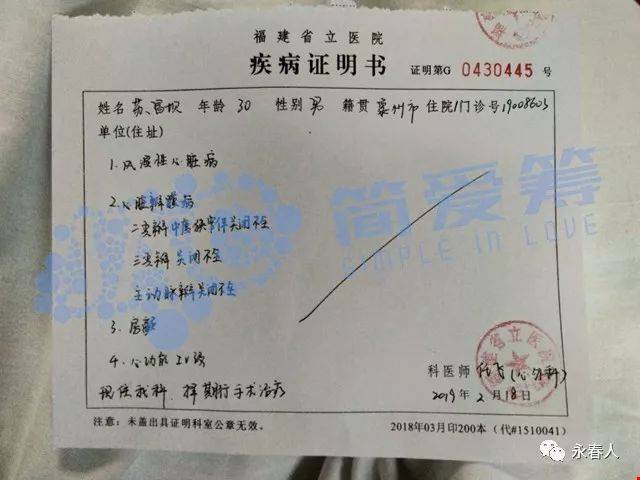 福建省立医院
疾病证明书
证明第G 0430445 号
姓名 苏 年龄 30 性别 男 籍贯 泉州市 住院/门诊号 19008603
单位(住址)
1. 风湿性心脏病
2. 心脏瓣膜病
二尖瓣中度狭窄伴关闭不全
三尖瓣关闭不全
主动脉瓣关闭不全
3. 房颤
4. 心功能IV级
现住我科 择期行手术治疗
科医师 (心外科)
2019年2月18日
福建省立医院
注意:未盖出具证明科室公章无效。
2018年03月印200本(代#1510041)
简爱筹
SIMPLE IN LOVE
永春人